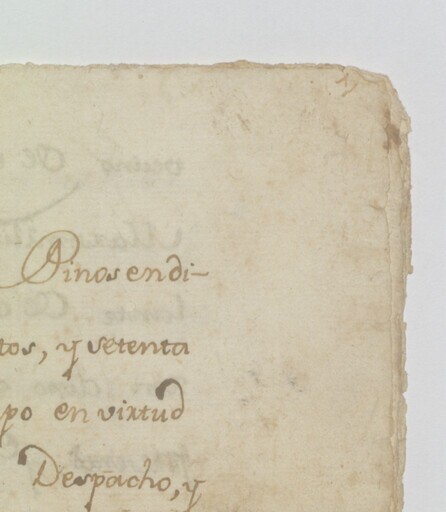 Pinos en di-
tos, y setenta
po en virtud
Despacho, y